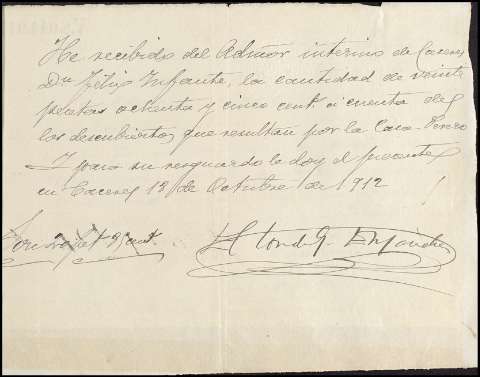 He recibido del Admor interino de Caceres
Dn Felix Infante, la cantidad de veinte
pesetas ochenta y cinco cent. á cuenta de
los descubiertos que resultan por la Casa-
Y para su resguardo le doy el presente
en Caceres 18 de Octubre de 1912
Son
El Conde